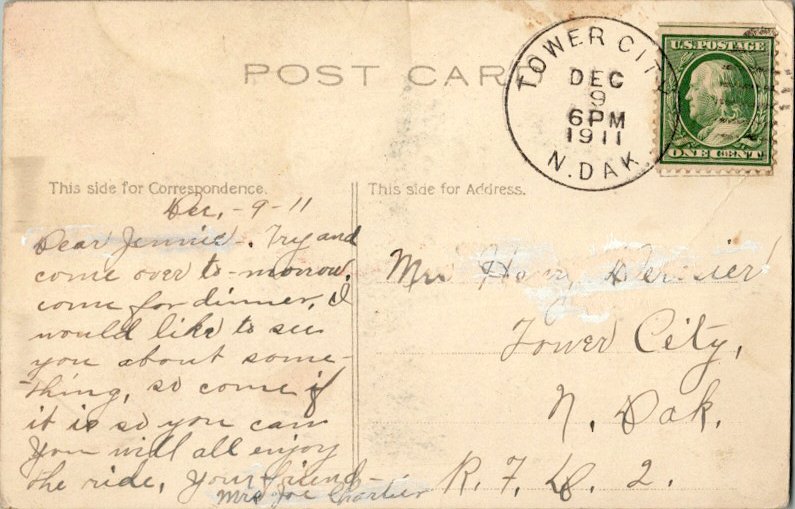 POST CARD
TOWER CITY
DEC
9
6PM
1911
N. DAK.
U.S. POSTAGE
ONE CENT
This side for Correspondence.
Dec. - 9 - 11
Dear Jennie -. Try and
come over to-morrow,
come for dinner, I
would like to see
you about some-
thing, so come if
it is so you can
You will all enjoy
the ride, Your friend -
Mrs Joe Chartier
This side for Address.
Mrs
Tower City,
N. Dak.
R. F. D. 2.